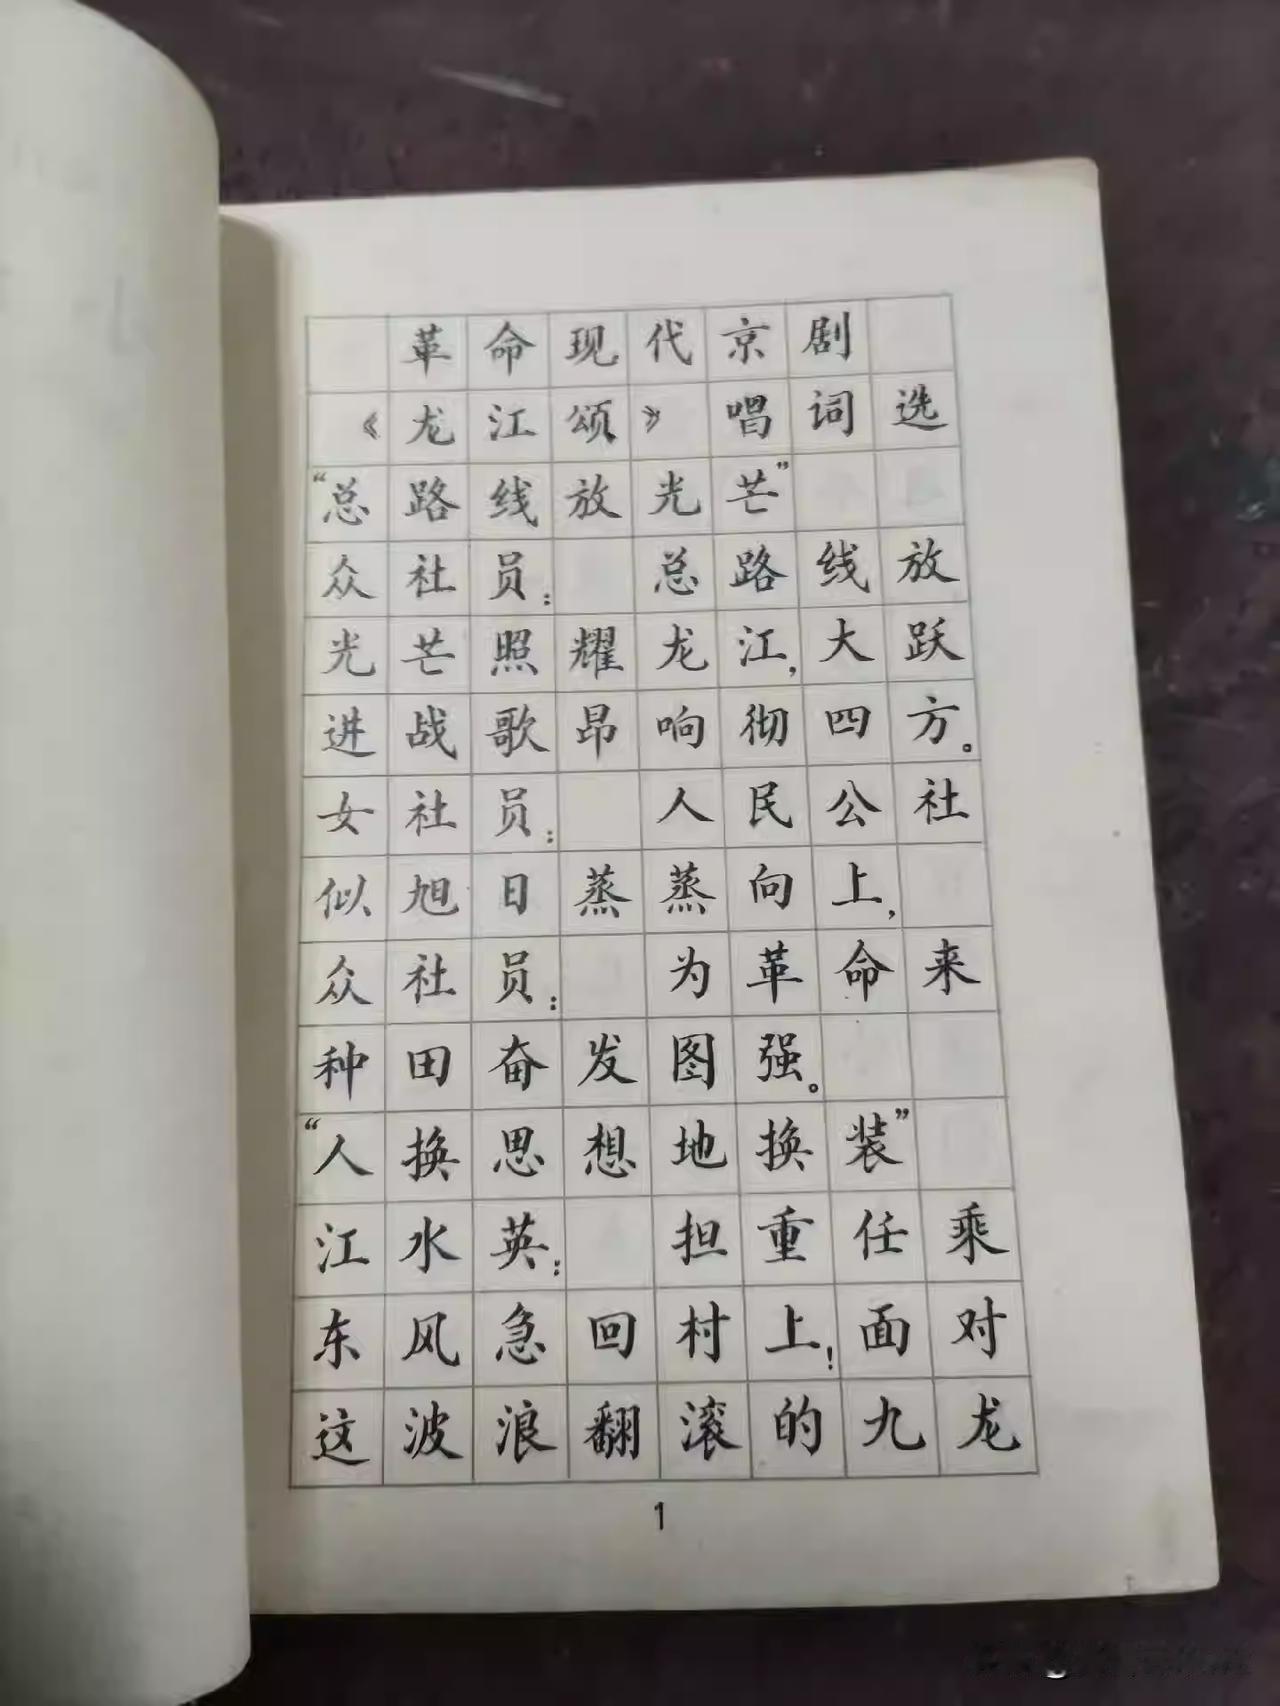 革命现代京剧
《龙江颂》唱词选
“总路线放光芒”
众社员： 总路线放
光芒照耀龙江，大跃
进战歌昂响彻四方。
女社员： 人民公社
似旭日蒸蒸向上，
众社员： 为革命来
种田奋发图强。
“人换思想地换装”
江水英： 担重任乘
东风急回村上！面对
这波浪翻滚的九龙
1